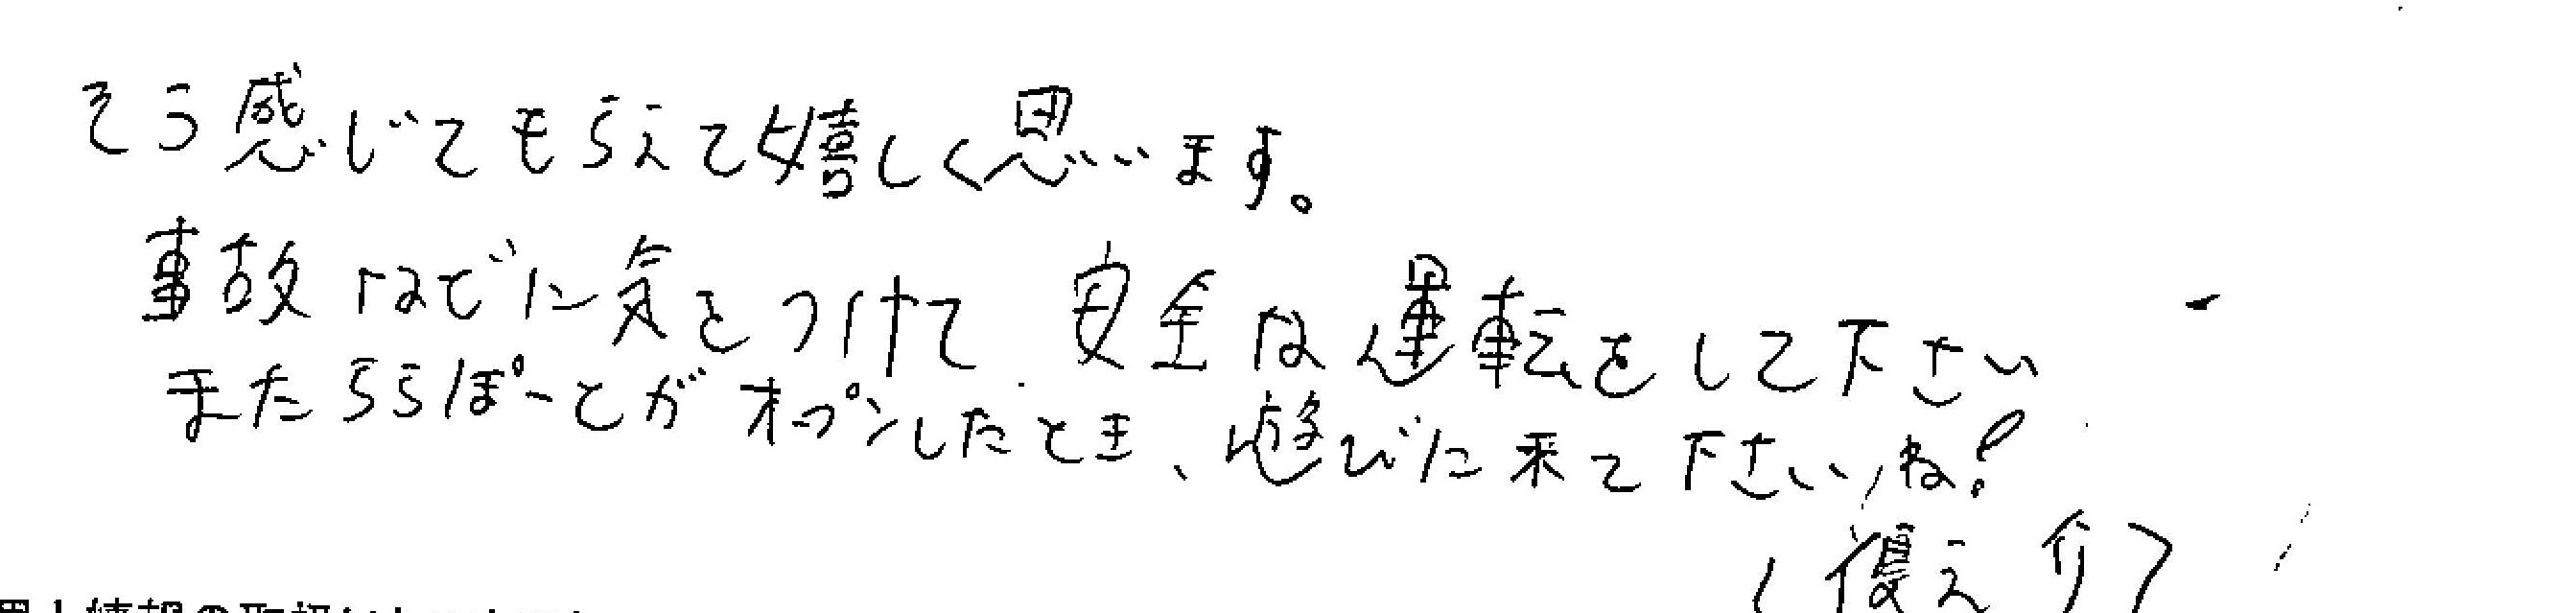 そう感じてもらえて嬉しく思います。
事故などに気をつけて 安全な運転をして下さい
またららぽーとがオープンしたとき、遊びに来て下さいね!